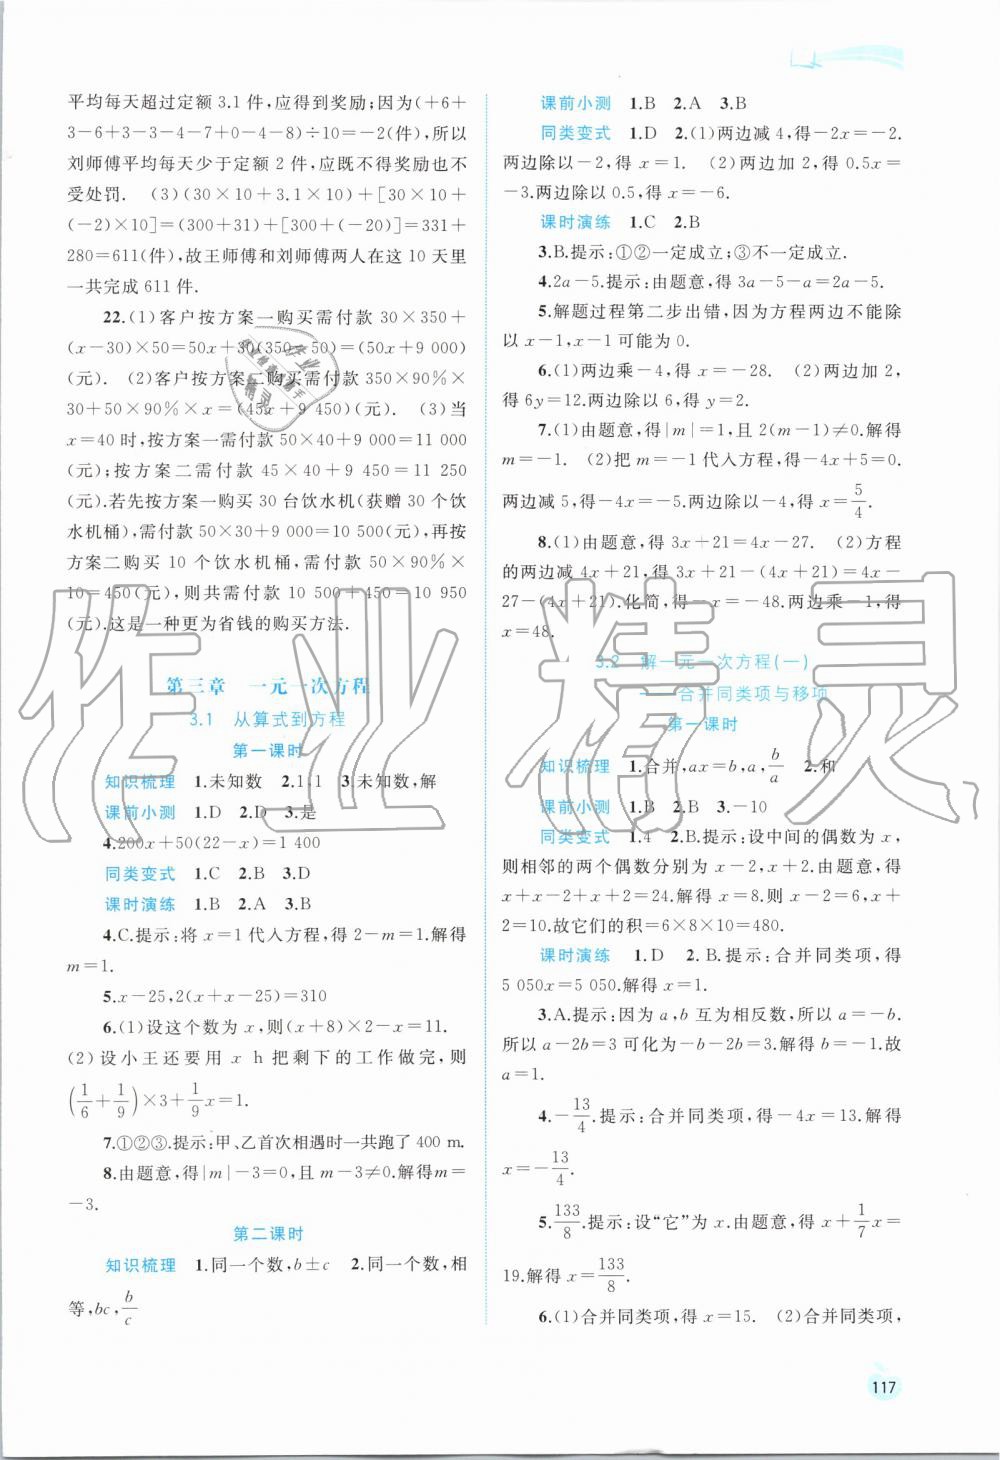 平均每天超过定额 3.1 件,应得到奖励;因为(+6+
3-6+3-3-4-7+0-4-8)÷10=-2(件),所以
刘师傅平均每天少于定额 2 件,应既不得奖励也不
受处罚. (3)(30×10+3.1×10)+[30×10+
(-2)×10]=(300+31)+[300+(-20)]=331+
280=611(件),故王师傅和刘师傅两人在这 10 天里
一共完成 611 件.
22.(1)客户按方案一购买需付款 30×350+
(x-30)×50=50x+30(350-50)=(50x+9 000)
(元). (2)客户按方案二购买需付款 350×90%×
30+50×90%×x=(45x+9 450)(元). (3)当
x=40 时,按方案一需付款 50×40+9 000=11 000
(元);按方案二需付款 45×40+9 450=11 250
(元).若先按方案一购买 30 台饮水机(获赠 30 个饮
水机桶),需付款 50×30+9 000=10 500(元),再按
方案二购买 10 个饮水机桶,需付款 50×90%×
10=450(元),则共需付款 10 500+450=10 950
(元).这是一种更为省钱的购买方法.
第三章 一元一次方程
3.1 从算式到方程
第一课时
知识梳理 1.未知数 2.1,1 3.未知数,解
课前小测 1.D 2.D 3.是
4.200x+50(22-x)=1 400
同类变式 1.C 2.B 3.D
课时演练 1.B 2.A 3.B
4.C.提示:将 x=1 代入方程,得 2-m=1.解得
m=1.
5.x-25,2(x+x-25)=310
6.(1)设这个数为 x,则(x+8)×2-x=11.
(2)设小王还要用 x h 把剩下的工作做完,则
(1/6+1/9)×3+1/9x=1.
7.①②③.提示:甲、乙首次相遇时一共跑了 400 m.
8.由题意,得|m|-3=0,且 m-3≠0.解得m=
-3.
第二课时
知识梳理 1.同一个数,b±c 2.同一个数,相
等,bc,b/c
课前小测 1.B 2.A 3.B
同类变式 1.D 2.(1)两边减 4,得-2x=-2.
两边除以-2,得 x=1. (2)两边加 2,得 0.5x=
-3.两边除以 0.5,得 x=-6.
课时演练 1.C 2.B
3.B.提示:①②一定成立;③不一定成立.
4.2a-5.提示:由题意,得 3a-5-a=2a-5.
5.解题过程第二步出错,因为方程两边不能除
以 x-1,x-1 可能为 0.
6.(1)两边乘-4,得 x=-28. (2)两边加 2,
得 6y=12.两边除以 6,得 y=2.
7.(1)由题意,得|m|=1,且 2(m-1)≠0.解得
m=-1. (2)把 m=-1代入方程,得-4x+5=0.
两边减 5,得-4x=-5.两边除以-4,得 x=5/4.
8.(1)由题意,得 3x+21=4x-27. (2)方程
的两边减 4x+21,得 3x+21-(4x+21)=4x-
27-(4x+21).化简,得-x=-48.两边乘-1,得
x=48.
3.2 解一元一次方程(一)
——合并同类项与移项
第一课时
知识梳理 1.合并,ax=b,a,b/a 2.和
课前小测 1.B 2.B 3.-10
同类变式 1.4 2.B.提示:设中间的偶数为 x,
则相邻的两个偶数分别为 x-2,x+2.由题意,得
x+x-2+x+2=24.解得 x=8.则 x-2=6,x+
2=10.故它们的积=6×8×10=480.
课时演练 1.D 2.B.提示:合并同类项,得
5 050x=5 050.解得 x=1.
3.A.提示:因为 a,b 互为相反数,所以 a=-b.
所以 a-2b=3 可化为-b-2b=3.解得 b=-1.故
a=1.
4.-13/4.提示:合并同类项,得-4x=13.解得
x=-13/4.
5.133/8.提示:设“它”为 x.由题意,得 x+1/7x=
19.解得 x=133/8.
6.(1)合并同类项,得 x=15. (2)合并同类项,
117
作业精灵